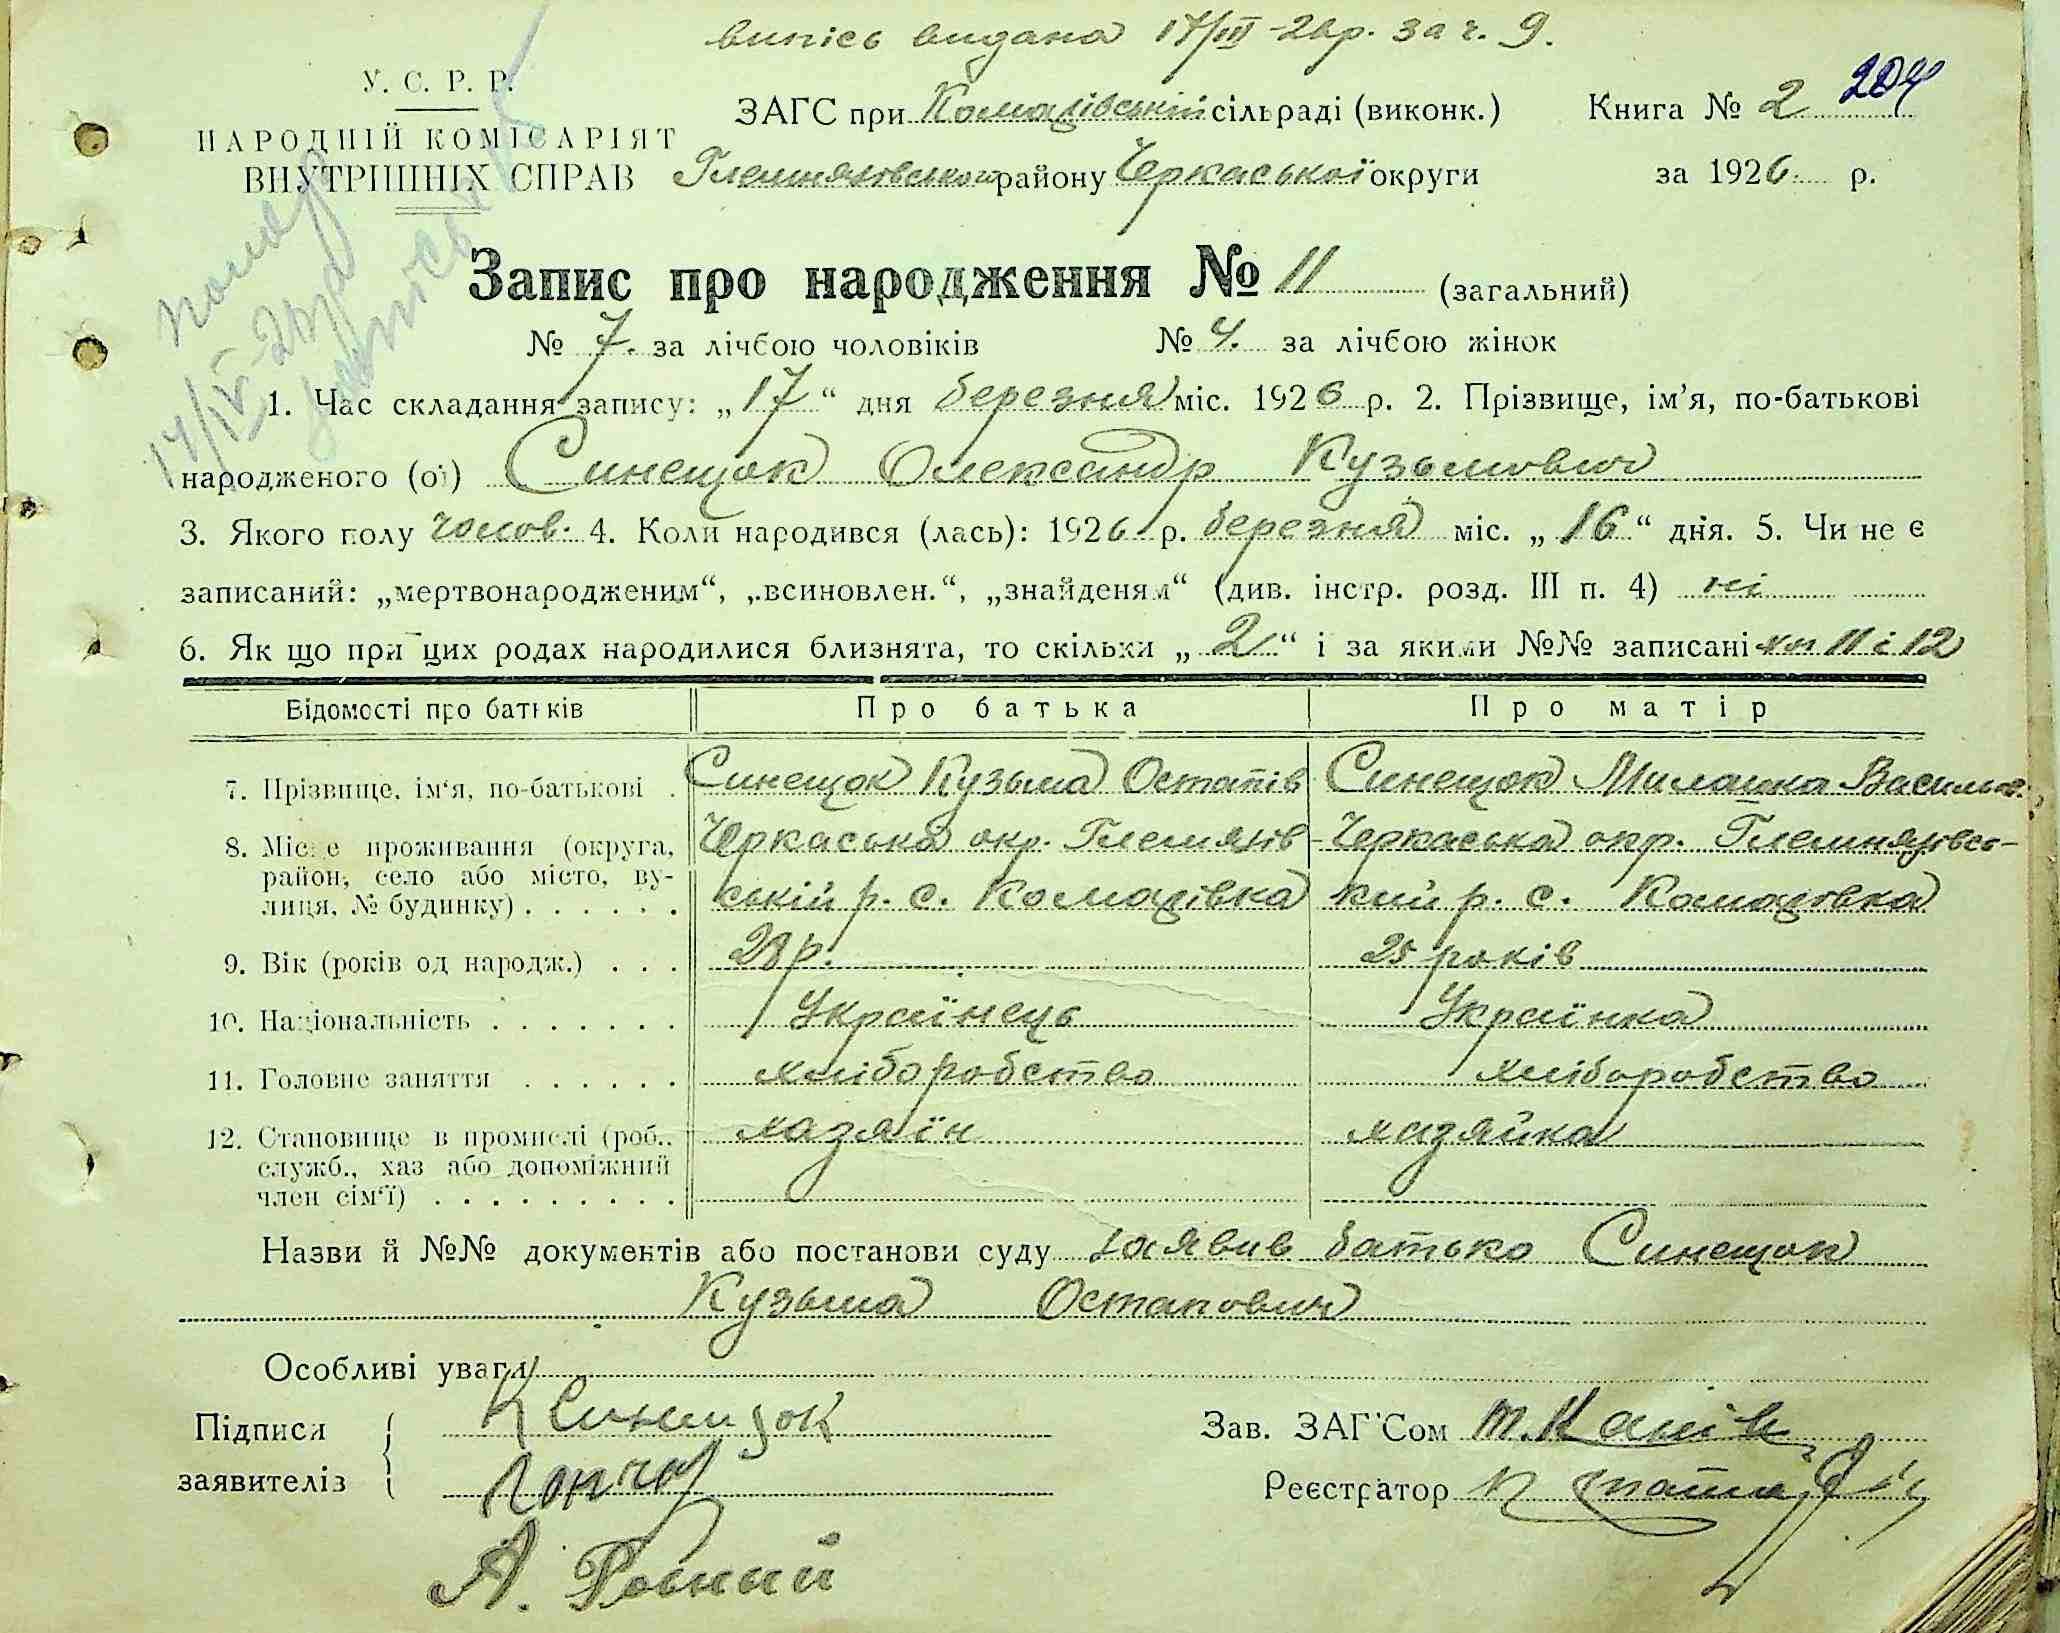 випісь видана 17/III-26р. за ч. 9.
У. С. Р. Р.
НАРОДНІЙ КОМІСАРІЯТ
ВНУТРІШНІХ СПРАВ
ЗАГС при Комарівській сільраді (виконк.)
Книга № 2 204
Гельмязівського району Черкаської округи
за 1926 р.
Запис про народження № 11 (загальний)
№ 7. за лічбою чоловіків № 4. за лічбою жінок
1. Час складання запису: „17“ дня березня міс. 1926 р. 2. Прізвище, ім’я, по-батькові
народженого (ої) Синещок Олександр Кузьмович
3. Якого полу чолов. 4. Коли народився (лась): 1926 р. березня міс. „16“ дня. 5. Чи не є
записаний: „мертвонародженим“, „всиновлен.“, „знайденям“ (див. інстр. розд. III п. 4) ні
6. Як що при цих родах народилися близнята, то скільки „2“ і за якими №№ записані 11 і 12
Відомості про батьків Про батька Про матір
7. Прізвище, ім‘я, по-батькові . Синещок Кузьма Остапів Синещок Милашка Васильов.
8. Місце проживання (округа, район, село або місто, вулиця, № будинку) . . . . . .
Черкаська окр. Гельмязів
ський р. с. Комарівка
Черкаська окр. Гельмязівсь-
кий р. с. Комарівка
9. Вік (років од народж.) . . . 28 р. 25 років
10. Національність . . . . . . . Українець Українка
11. Головне заняття . . . . . . хліборобство хліборобство
12. Становище в промислі (роб., служб., хаз або допоміжний член сім‘ї) . . . . . . . . .
хазяїн хазяйка
Назви й №№ документів або постанови суду заявив батько Синещок
Кузьма Остапович
Особливі уваги
Підписи
заявителів
К Синещок
Гончар
А. Ровний
Зав. ЗАГ‘Сом
Реєстратор